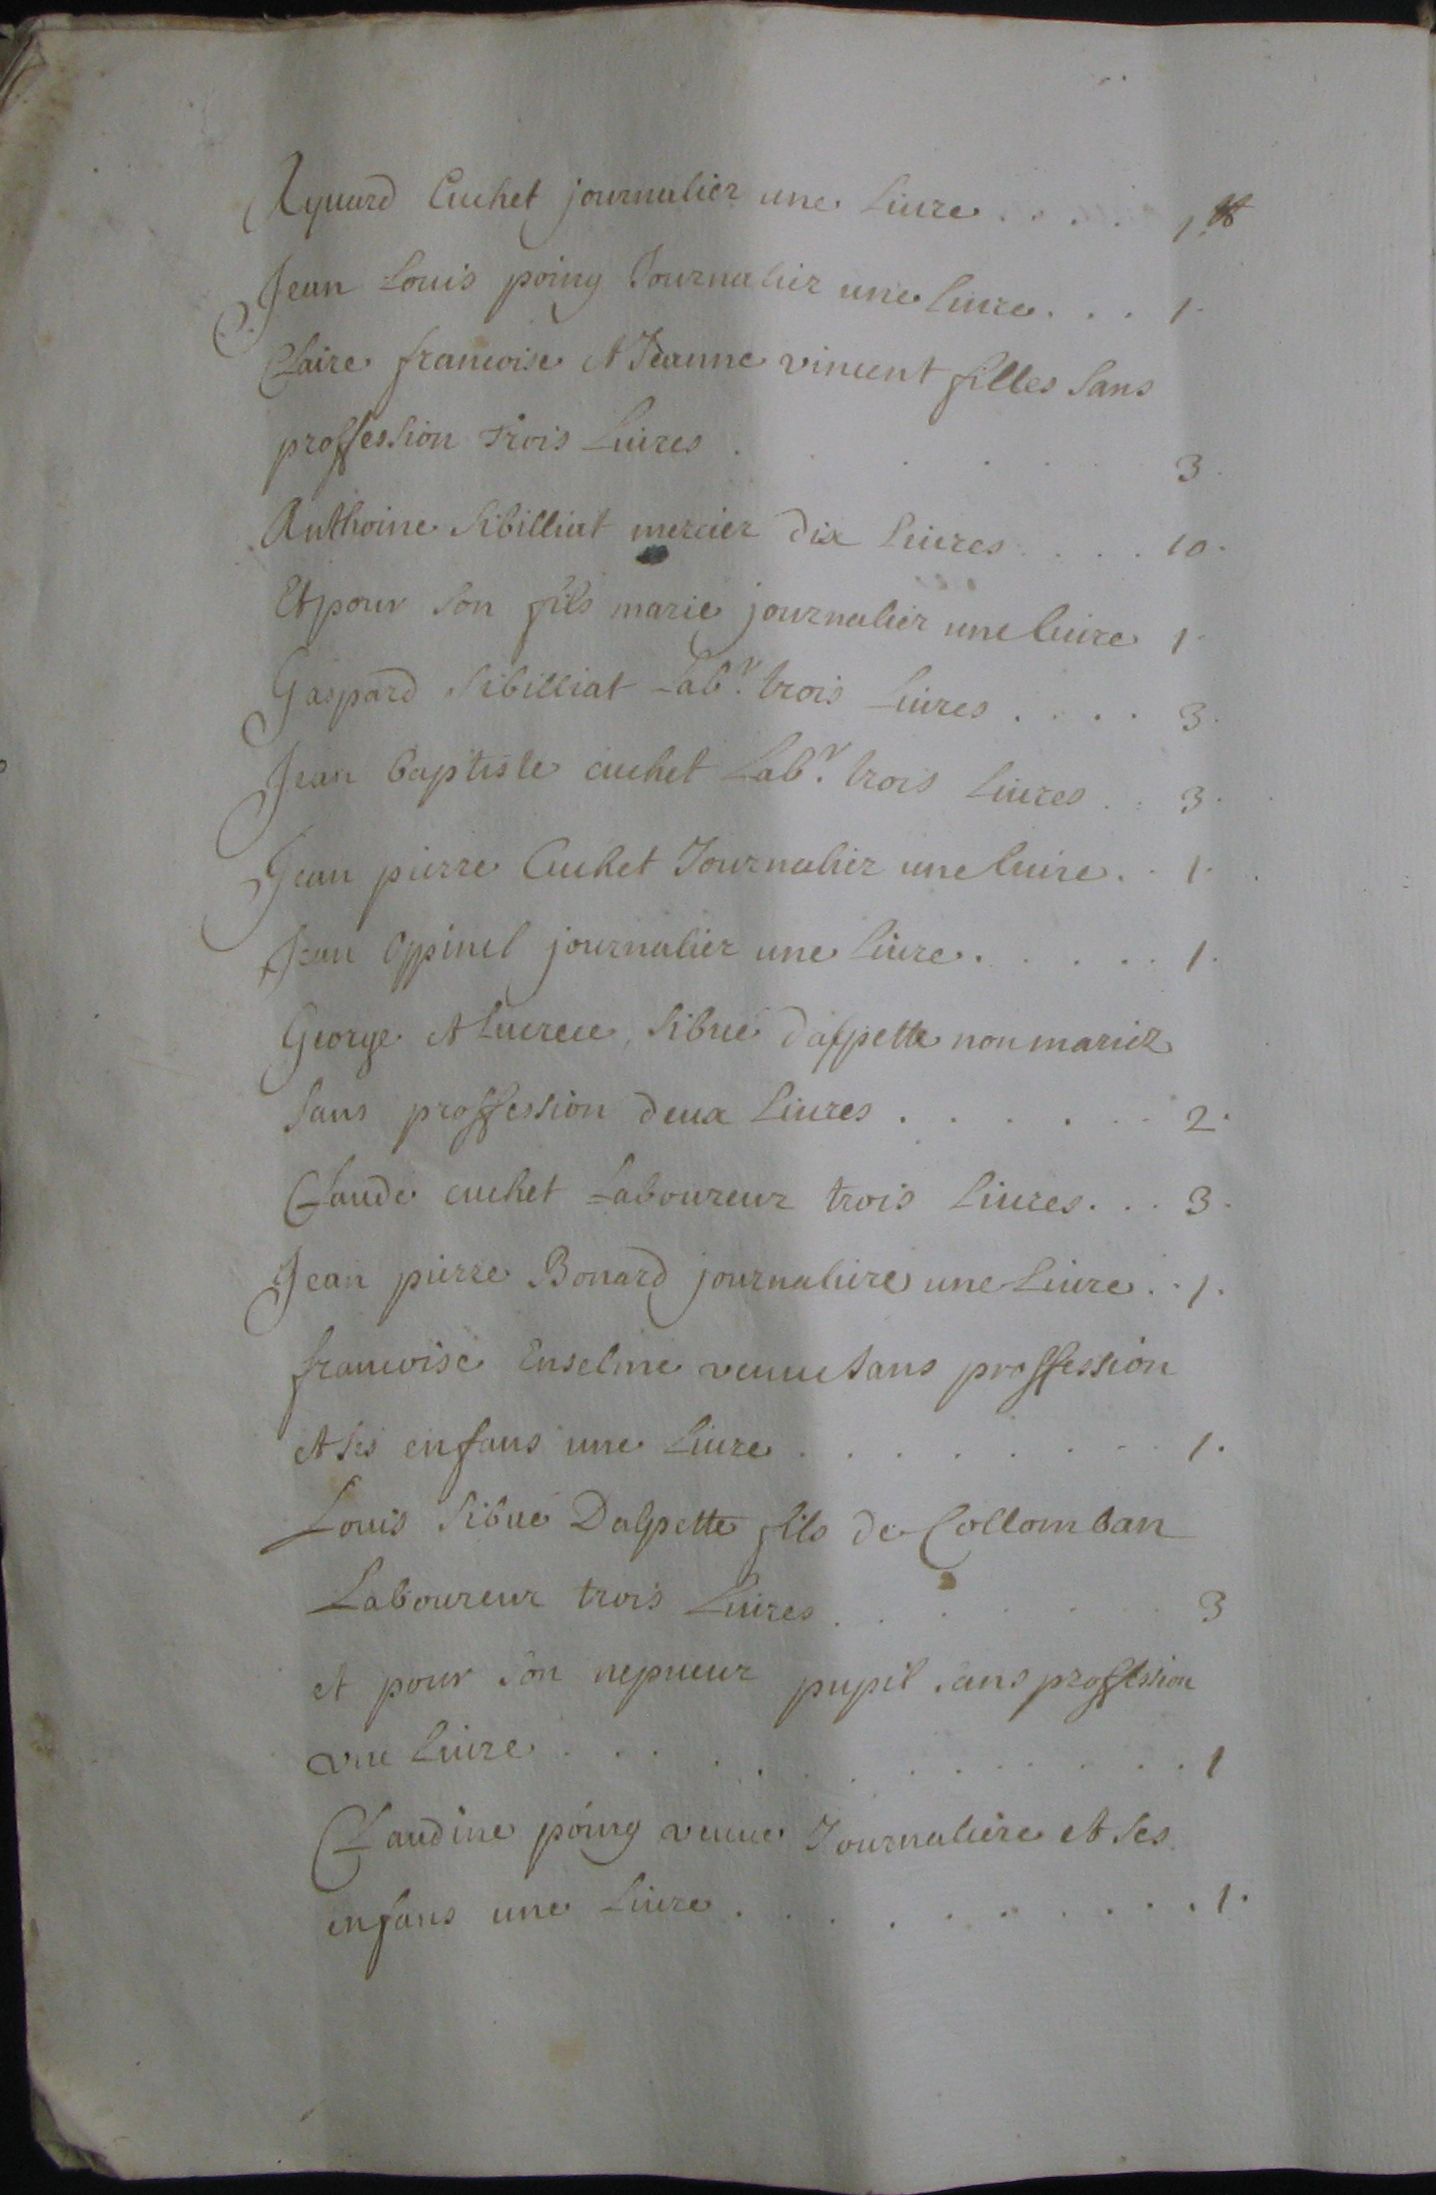 Aymard Cuchet journalier une livre . . . . 1 ₶
Jean Louis poing Journalier une livre . . . 1.
Claire francoise et Jeanne vincent filles sans
proffession trois Livres . . . . . 3.
Anthoine Sibilliat mercier dix livres . . . . 10.
Et pour son fils marié journalier une livre 1.
Gaspard Sibilliat Labr. trois Livres . . . . 3.
Jean baptiste cuchet Labr. trois livres . . 3.
Jean pierre Cuchet Journalier une livre . . 1.
Jean Oppinel journalier une livre . . . . . 1.
George et Lucrece Sibué dalpette non mariez
sans proffession deux livres . . . . . . 2.
Claude cuchet Laboureur trois livres . . . 3.
Jean pierre Bonard journaliere une Livre . . 1.
francoise Enselme veuve sans proffession
et ses enfans une livre . . . . . . . . 1.
Louis Sibué Dalpette fils de Collomban
Laboureur trois Livres . . . . . 3
et pour son nepveur pupil sans proffession
vne livre . . . . . . . . . . . 1
Claudine poing veuve Journaliere et ses
enfans une livre . . . . . . . . . . 1.